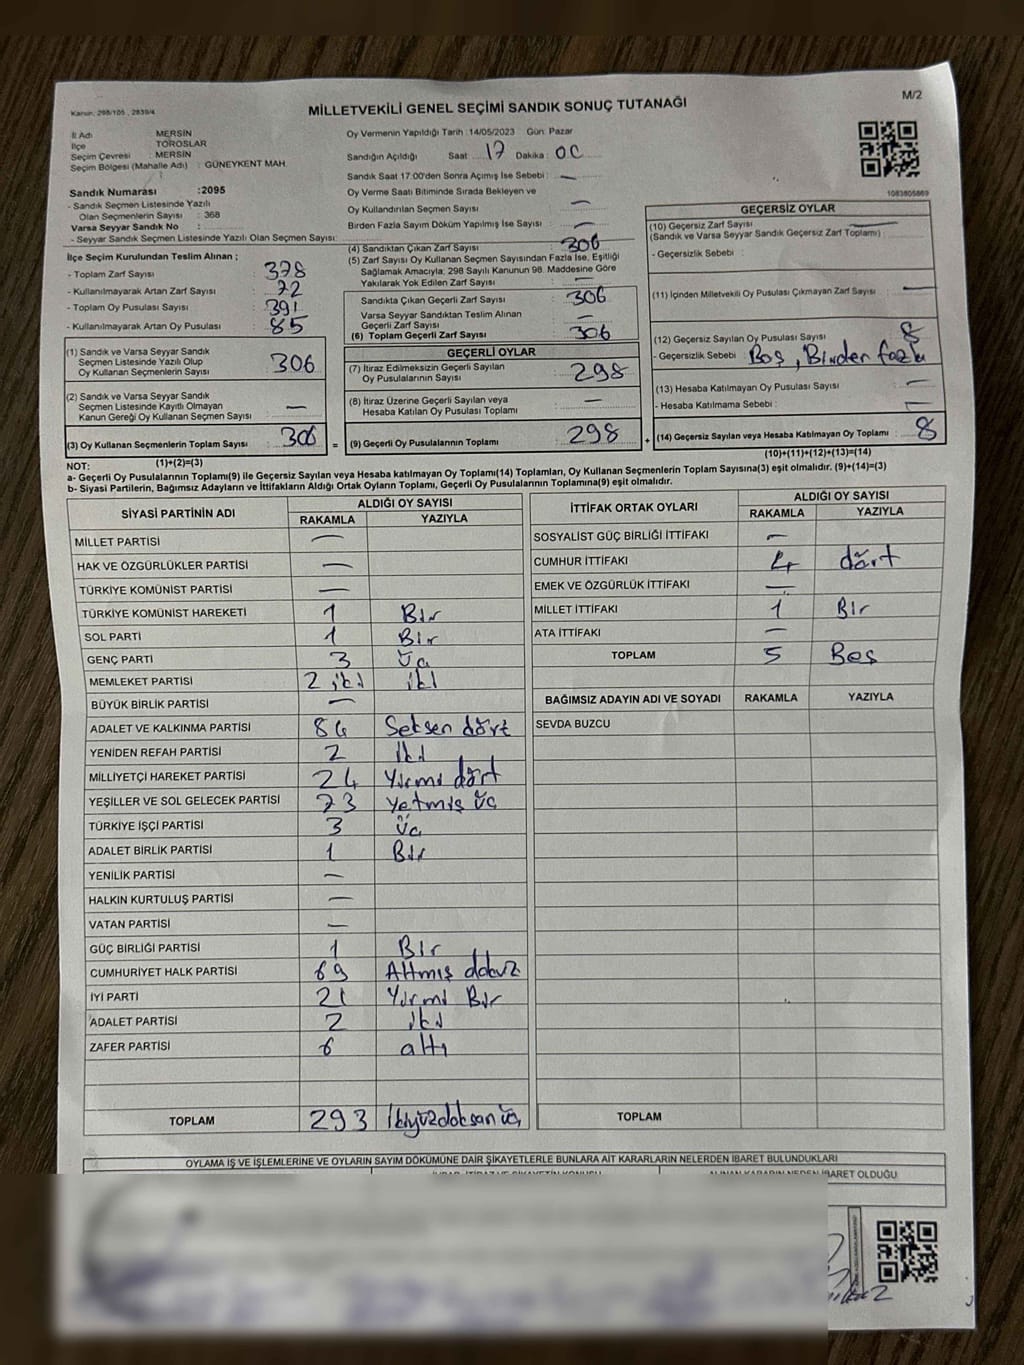 Kanun: 298/105 , 2839/4
MİLLETVEKİLİ GENEL SEÇİMİ SANDIK SONUÇ TUTANAĞI
M/2
İl Adı MERSİN
İlçe TOROSLAR
Seçim Çevresi MERSİN
Seçim Bölgesi (Mahalle Adı) : GÜNEYKENT MAH.
Sandık Numarası :2095
- Sandık Seçmen Listesinde Yazılı
Olan Seçmenlerin Sayısı : 368
Varsa Seyyar Sandık No :
- Seyyar Sandık Seçmen Listesinde Yazılı Olan Seçmen Sayısı:
Oy Vermenin Yapıldığı Tarih :14/05/2023 Gün: Pazar
Sandığın Açıldığı Saat 17 Dakika : 00
Sandık Saat 17.00'den Sonra Açımış İse Sebebi : —
Oy Verme Saati Bitiminde Sırada Bekleyen ve
Oy Kullandırılan Seçmen Sayısı —
Birden Fazla Sayım Döküm Yapılmış İse Sayısı : —
1083805869
İlçe Seçim Kurulundan Teslim Alınan ;
- Toplam Zarf Sayısı : 378
- Kullanılmayarak Artan Zarf Sayısı : 72
- Toplam Oy Pusulası Sayısı : 391
- Kullanılmayarak Artan Oy Pusulası : 85
(1) Sandık ve Varsa Seyyar Sandık
Seçmen Listesinde Yazılı Olup
Oy Kullanan Seçmenlerin Sayısı : 306
(2) Sandık ve Varsa Seyyar Sandık
Seçmen Listesinde Kayıtlı Olmayan
Kanun Gereği Oy Kullanan Seçmen Sayısı : —
(3) Oy Kullanan Seçmenlerin Toplam Sayısı : 306 =
(1)+(2)=(3)
(4) Sandıktan Çıkan Zarf Sayısı : 306
(5) Zarf Sayısı Oy Kullanan Seçmen Sayısından Fazla İse, Eşitliği
Sağlamak Amacıyla; 298 Sayılı Kanunun 98. Maddesine Göre
Yakılarak Yok Edilen Zarf Sayısı : —
Sandıkta Çıkan Geçerli Zarf Sayısı : 306
Varsa Seyyar Sandıktan Teslim Alınan
Geçerli Zarf Sayısı : —
(6) Toplam Geçerli Zarf Sayısı : 306
GEÇERLİ OYLAR
(7) İtiraz Edilmeksizin Geçerli Sayılan
Oy Pusulalarının Sayısı : 298
(8) İtiraz Üzerine Geçerli Sayılan veya
Hesaba Katılan Oy Pusulası Toplamı : —
(9) Geçerli Oy Pusulalarının Toplamı : 298 +
GEÇERSİZ OYLAR
(10) Geçersiz Zarf Sayısı : —
(Sandık ve Varsa Seyyar Sandık Geçersiz Zarf Toplamı)
- Geçersizlik Sebebi :
(11) İçinden Milletvekili Oy Pusulası Çıkmayan Zarf Sayısı : —
(12) Geçersiz Sayılan Oy Pusulası Sayısı : 8
- Geçersizlik Sebebi Boş , Birden fazla
(13) Hesaba Katılmayan Oy Pusulası Sayısı : —
- Hesaba Katılmama Sebebi : —
(14) Geçersiz Sayılan veya Hesaba Katılmayan Oy Toplamı : 8
(10)+(11)+(12)+(13)=(14)
NOT:
a- Geçerli Oy Pusulalarının Toplamı(9) ile Geçersiz Sayılan veya Hesaba katılmayan Oy Toplamı(14) Toplamları, Oy Kullanan Seçmenlerin Toplam Sayısına(3) eşit olmalıdır. (9)+(14)=(3)
b- Siyasi Partilerin, Bağımsız Adayların ve İttifakların Aldığı Ortak Oyların Toplamı, Geçerli Oy Pusulalarının Toplamına(9) eşit olmalıdır.
SİYASİ PARTİNİN ADI ALDIĞI OY SAYISI
RAKAMLA YAZIYLA
MİLLET PARTİSİ —
HAK VE ÖZGÜRLÜKLER PARTİSİ —
TÜRKİYE KOMÜNİST PARTİSİ —
TÜRKİYE KOMÜNİST HAREKETİ 1 Bir
SOL PARTİ 1 Bir
GENÇ PARTİ 3 üç
MEMLEKET PARTİSİ 2 iki iki
BÜYÜK BİRLİK PARTİSİ —
ADALET VE KALKINMA PARTİSİ 84 Seksen dört
YENİDEN REFAH PARTİSİ 2 iki
MİLLİYETÇİ HAREKET PARTİSİ 24 Yirmi dört
YEŞİLLER VE SOL GELECEK PARTİSİ 73 Yetmiş üç
TÜRKİYE İŞÇİ PARTİSİ 3 üç
ADALET BİRLİK PARTİSİ 1 Bir
YENİLİK PARTİSİ —
HALKIN KURTULUŞ PARTİSİ —
VATAN PARTİSİ —
GÜÇ BİRLİĞİ PARTİSİ 1 Bir
CUMHURİYET HALK PARTİSİ 69 Altmış dokuz
İYİ PARTİ 21 Yirmi Bir
ADALET PARTİSİ 2 iki
ZAFER PARTİSİ 6 altı
TOPLAM 293 İkiyüzdoksan üç
İTTİFAK ORTAK OYLARI ALDIĞI OY SAYISI
RAKAMLA YAZIYLA
SOSYALİST GÜÇ BİRLİĞİ İTTİFAKI —
CUMHUR İTTİFAKI 4 dört
EMEK VE ÖZGÜRLÜK İTTİFAKI —
MİLLET İTTİFAKI 1 Bir
ATA İTTİFAKI —
TOPLAM 5 Beş
BAĞIMSIZ ADAYIN ADI VE SOYADI RAKAMLA YAZIYLA
SEVDA BUZCU
TOPLAM
OYLAMA İŞ VE İŞLEMLERİNE VE OYLARIN SAYIM DÖKÜMÜNE DAİR ŞİKAYETLERLE BUNLARA AİT KARARLARIN NELERDEN İBARET BULUNDUKLARI
ALINAN KARARIN NEDEN İBARET OLDUĞU